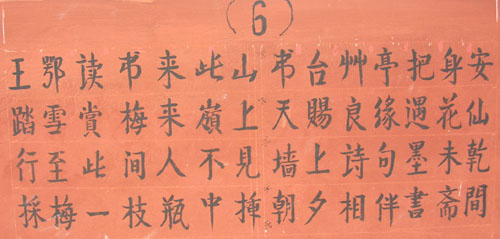 (6)
王鄂读书来此山书台艸亭把身安
踏雪赏梅来嶺上天賜良缘遇花仙
行至此间人不見墙上詩句墨未乾
採梅一枝瓶中揷朝夕相伴書斋間